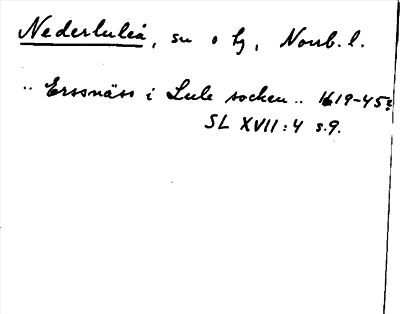 Nederluleå, sn o tg, Norrb. l.
.. Ersnäss i Lule socken .. 1619-45:
SL XVII:4 s.9.